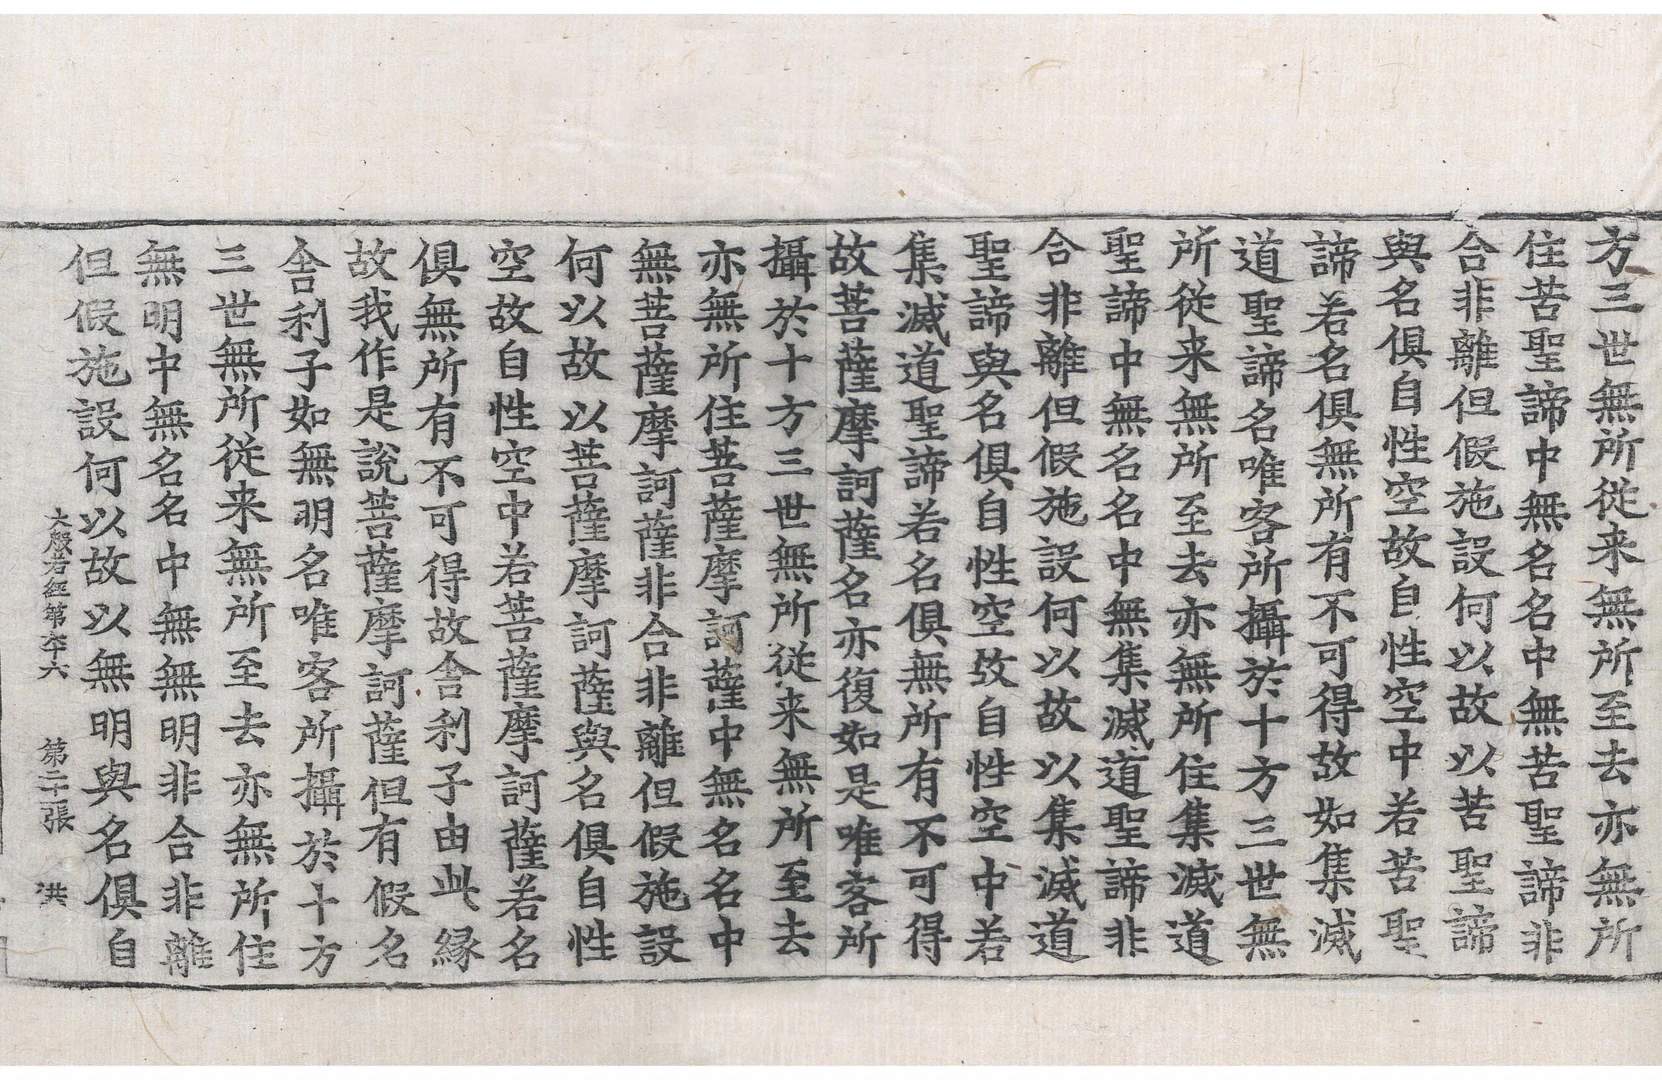 方三世無所從来無所至去亦無所
住苦聖諦中無名名中無苦聖諦非
合非離但假施設何以故以苦聖諦
與名俱自性空故自性空中若苦聖
諦若名俱無所有不可得故如集滅
道聖諦名唯客所攝於十方三世無
所從来無所至去亦無所住集滅道
聖諦中無名名中無集滅道聖諦非
合非離但假施設何以故以集滅道
聖諦與名俱自性空故自性空中若
集滅道聖諦若名俱無所有不可得
故菩薩摩訶薩名亦復如是唯客所
攝於十方三世無所從来無所至去
亦無所住菩薩摩訶薩中無名名中
無菩薩摩訶薩非合非離但假施設
何以故以菩薩摩訶薩與名俱自性
空故自性空中若菩薩摩訶薩若名
俱無所有不可得故舍利子由此縁
故我作是說菩薩摩訶薩但有假名
舍利子如無明名唯客所攝於十方
三世無所從来無所至去亦無所住
無明中無名名中無無明非合非離
但假施設何以故以無明與名俱自
大般若經第六十六 第二十張 洪